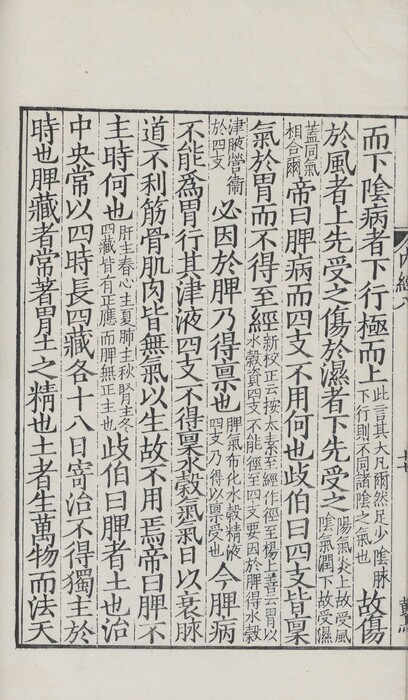 而下陰病者下行極而上此言其大凡爾然足少陰脉下行則不同諸陰之氣也故傷
於風者上先受之傷於濕者下先受之陽氣炎上故受風陰氣潤下故受濕
蓋同氣相合爾帝曰脾病而四支不用何也歧伯曰四支皆稟
氣於胃而不得至經新校正云按太素至經作徑至楊上善云胃以水穀資四支不能徑至四支要因於脾得水穀
津液營衞於四支必因於脾乃得稟也脾氣布化水穀精液四支乃得以稟受也今脾病
不能為胃行其津液四支不得稟水穀氣氣日以衰脉
道不利筋骨肌肉皆無氣以生故不用焉帝曰脾不
主時何也肝主春心主夏肺主秋腎主冬四藏皆有正應而脾無正主也歧伯曰脾者土也治
中央常以四時長四藏各十八日寄治不得獨主於
時也脾藏者常著胃土之精也土者生萬物而法天
內經八